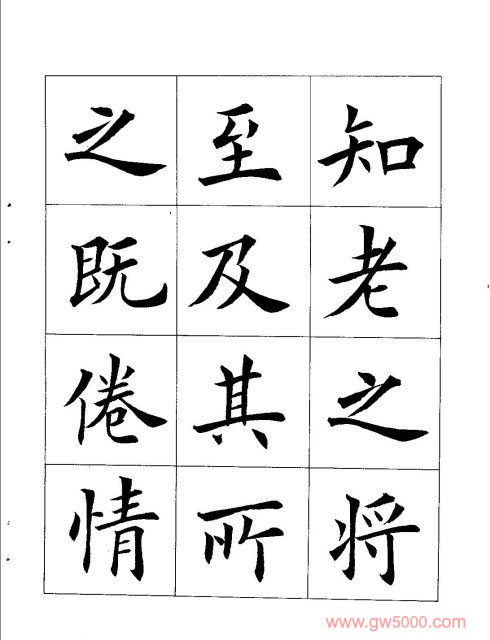 知老之将
至及其所
之既倦情
www.gw5000.com